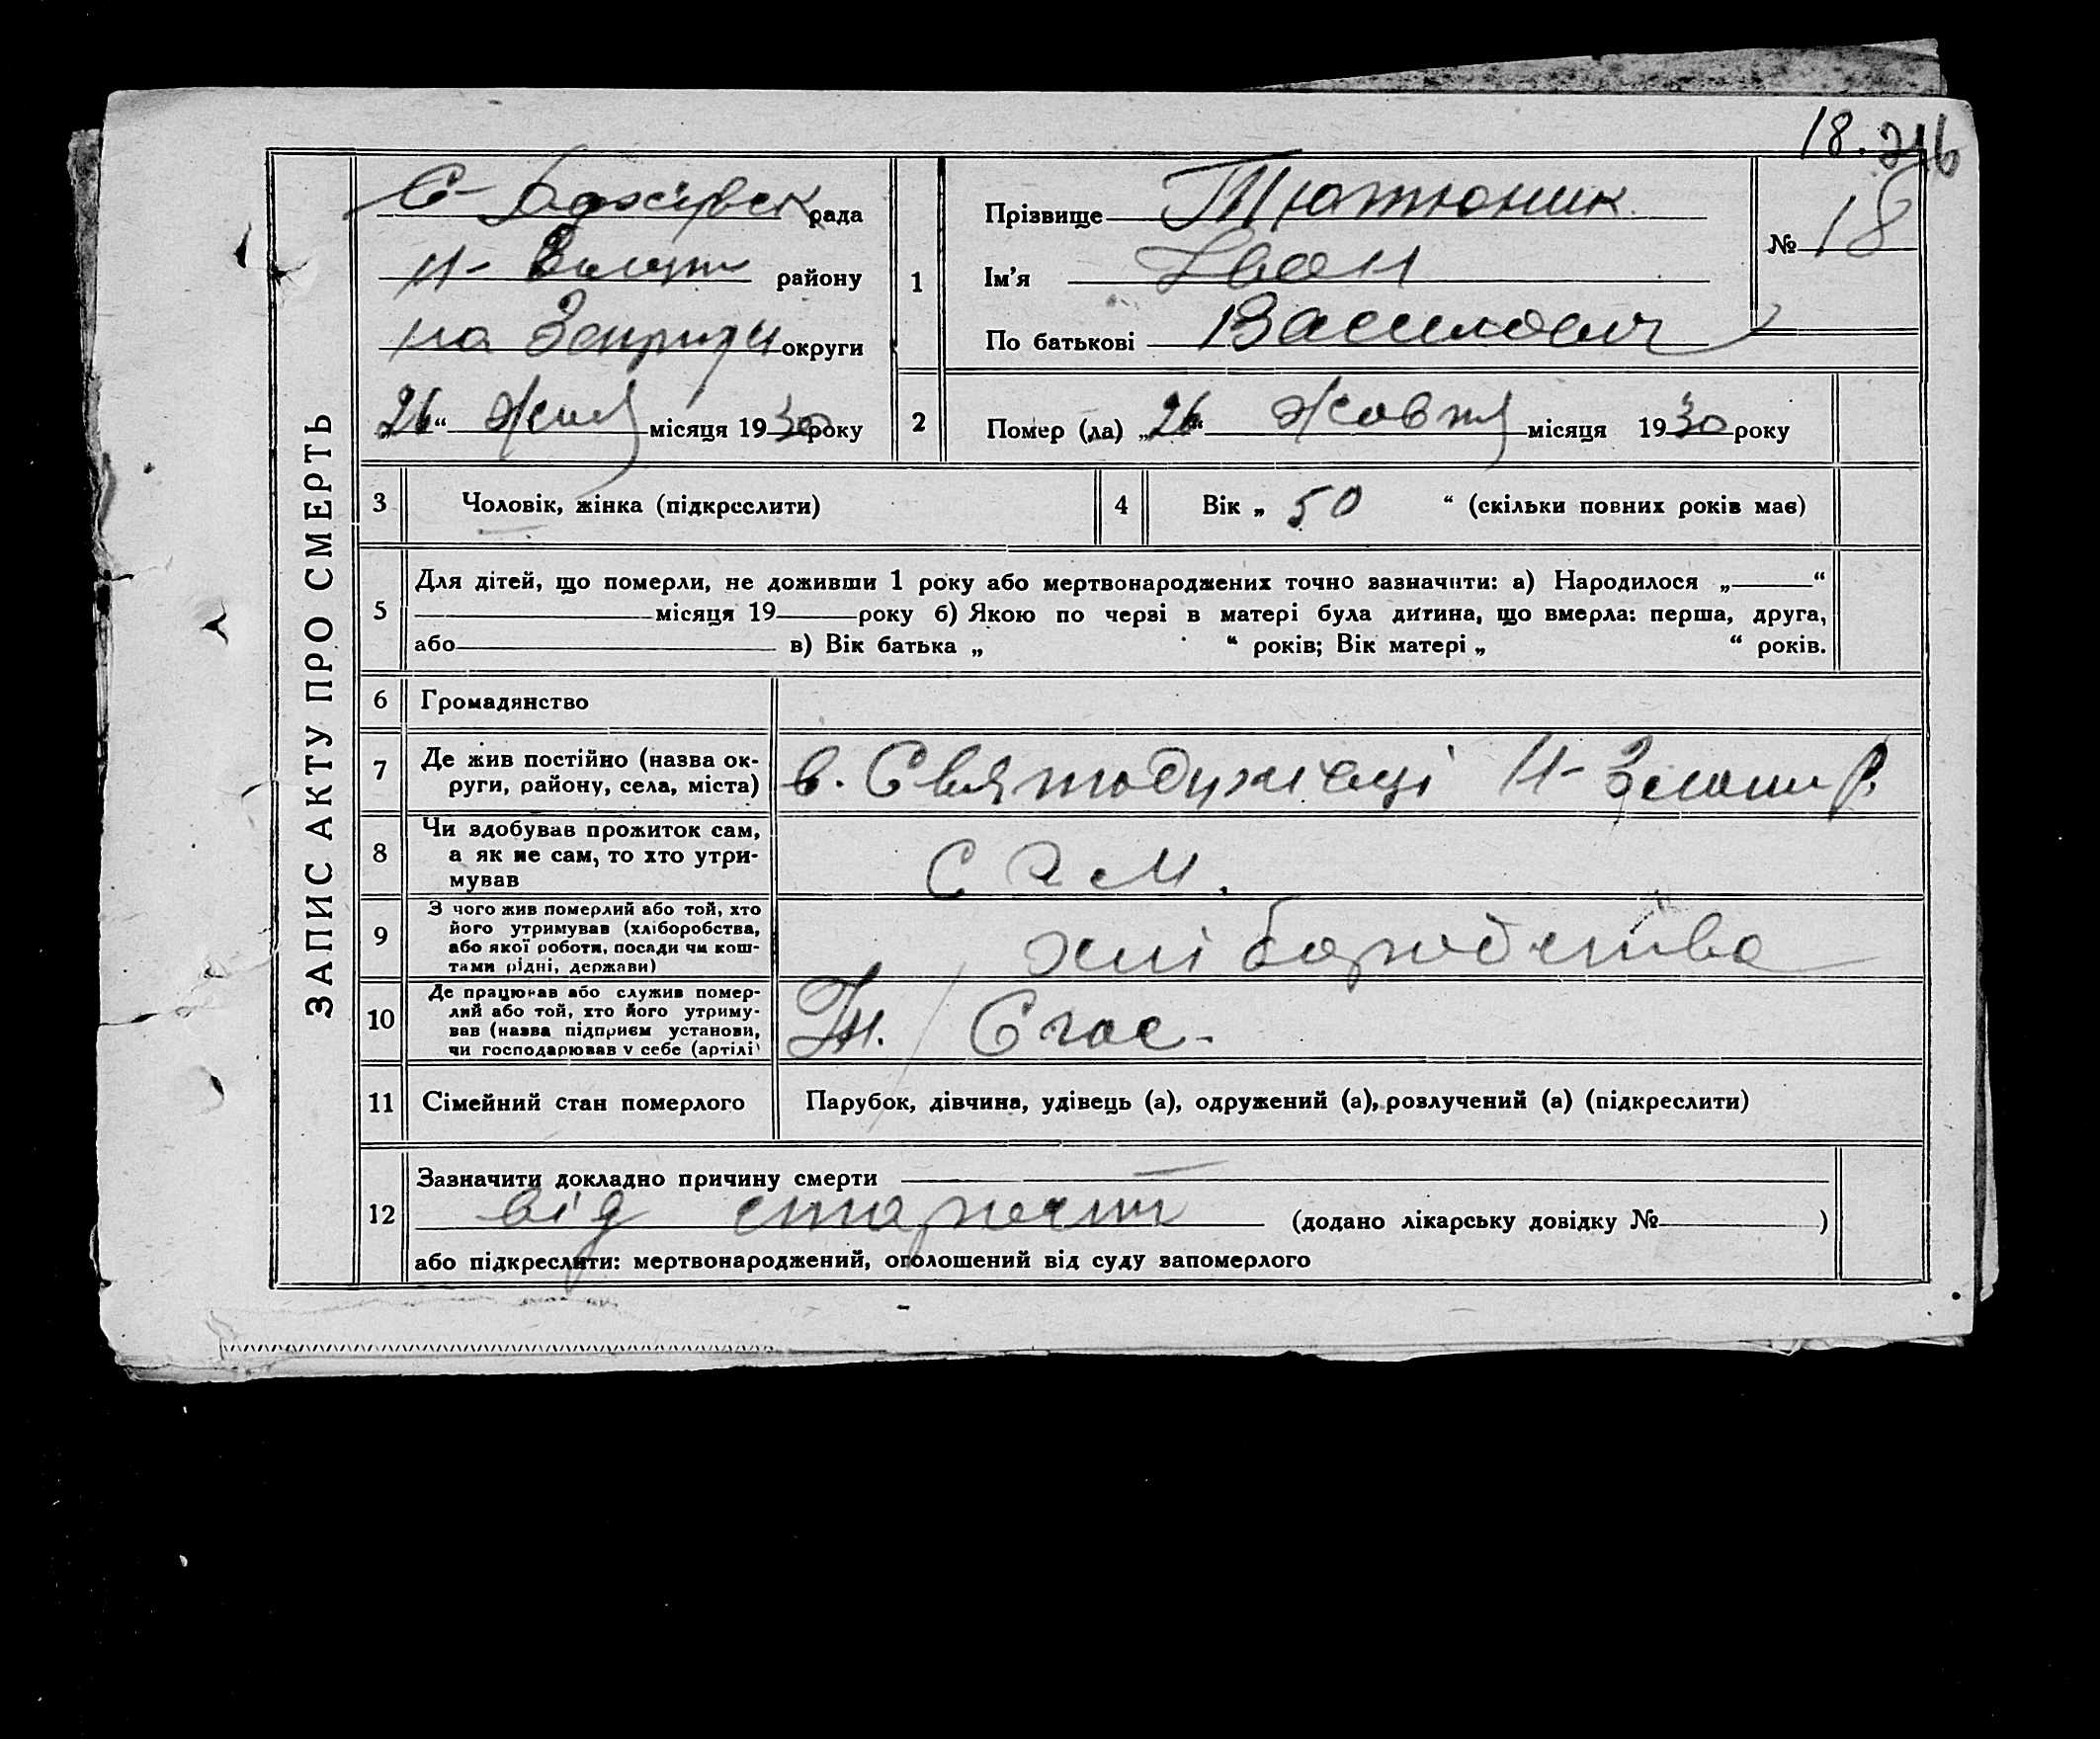 18. 216
ЗАПИС АКТУ ПРО СМЕРТЬ
рада
району
округи
26 " місяця 1930 року
1
Прізвище Тютюник
Ім'я Іван
По батькові Василович
№ 18
2
Помер (ла) „26" Жовтя місяця 1930 року
3
Чоловік, жінка (підкреслити)
4
Вік „ 50 " (скільки повних років має)
5
Для дітей, що померли, не доживши 1 року або мертвонароджених точно зазначити: а) Народилося „ "
місяця 19 року б) Якою по черзі в матері була дитина, що вмерла: перша, друга,
або в) Вік батька „ " років; Вік матері „ " років.
6
Громадянство
7
Де жив постійно (назва ок-
руги, району, села, міста)
в. Святодухівці Н-
8
Чи здобував прожиток сам,
а як не сам, то хто утри-
мував
сам.
9
З чого жив померлий або той, хто
його утримував (хліборобства,
або якої роботи, посади чи кош-
тами рідні, держави)
хліборобства
10
Де працював або служив помер-
лий або той, хто його утриму-
вав (назва підприєм установи,
чи господарював у себе (артілі)
11
Сімейний стан померлого
Парубок, дівчина, удівець (а), одружений (а), розлучений (а) (підкреслити)
12
Зазначити докладно причину смерти
від старости (додано лікарську довідку № )
або підкреслити: мертвонароджений, оголошений від суду запомерлого